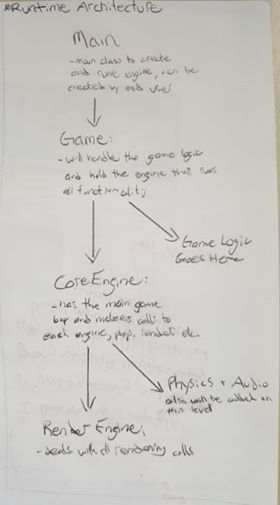 *Runtime Architecture
Main
- main class to create
and run engine, can be
created by end user
Game:
- will handle the game logic
and hold the engine that runs
all functionality
Game Logic
Goes Here
CoreEngine:
- has the main game
and makes calls to
each engine, render etc.
Physics + Audio
also will be called on
this level
Render Engine:
- deals with all rendering calls